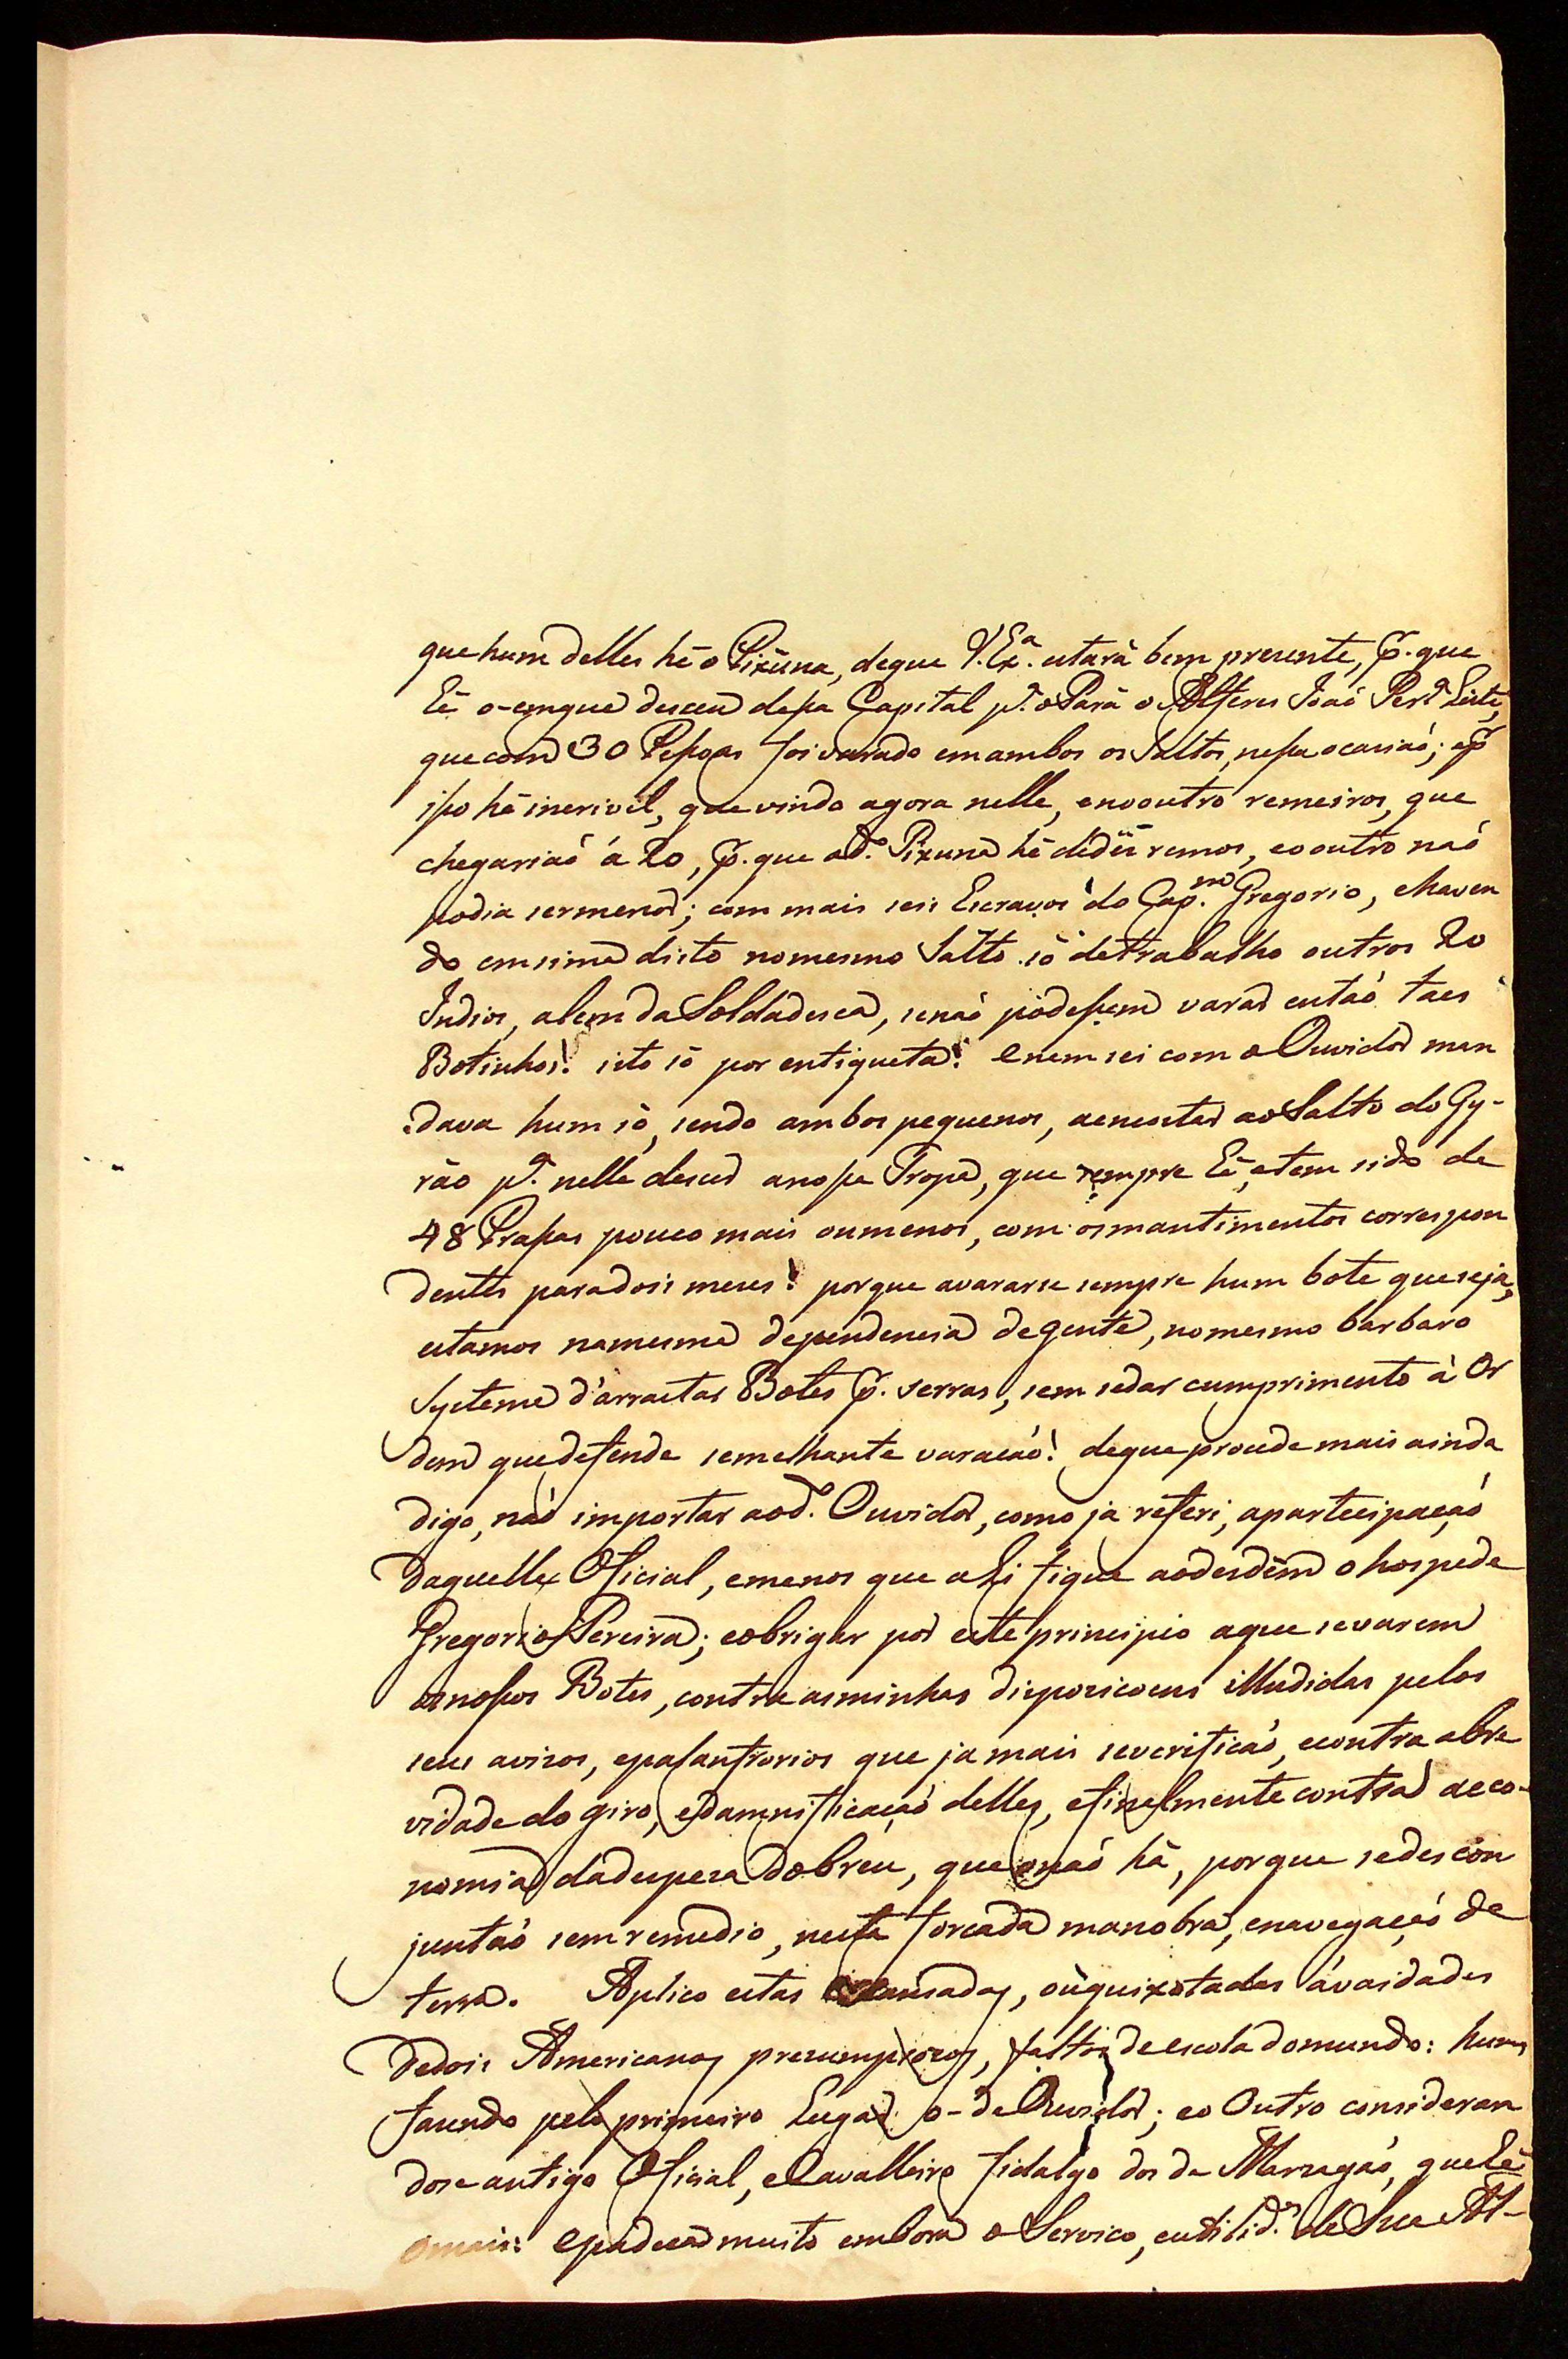 que hum delles hé o Pixuna, de que V. Exª. estará bem presente, p. que
hé o em que desceu dessa Capital pª. o Pará o Alferes Joaõ Perª. Leite,
que com 30 Pessoas foi varado em ambos os Saltos, nessa ocasiaõ; e p
isso hé incrivel, que vindo agora nelle, e no outro remeiros, que
chegariaõ á 20, p. que o dº. Pixuna hé de dês remos, e o outro naõ
podia ser menos; com mais seis Escravos do Cap.ᵐ Gregorio, e haven
do em sima disto no mesmo Salto só de trabalho outros 20
Indios, alem da Soldadesca, se naõ podessem varar entaõ taes
Botinhos! isto só por entiqueta! e nem sei com o Ouvidor man
dava hum só, sendo ambos pequenos, a encostar ao Salto do Gy-
rão pª. nelle descer a nossa Tropa, que sempre hé, e tem sido de
48 Prassas pouco mais ou menos, com os mantimentos correspon
dentes para dois meses! porque a vararse sempre hum bote que seja,
estamos na mesma dependencia de gente, no mesmo barbaro
Systema d'arrastar Botes p. serras, sem se dar cumprimento á Or
dem que defende semelhante varaçaõ! de que procede mais ainda
digo, naõ importar ao dº. Ouvidor, como ja referi, a participaçaõ
daquelle Oficial, e menos que ahi fique ao desdêm o hospede
Gregorio Pereira; e obrigar por este principio a que se varem
os nossos Botes, contra as minhas disposicoens illudidas pelos
seus avizos, e palanfrorios que ja mais se verificaõ, e contra a bre
vidade do giro, e damnificaçaõ delles, e finalmente contra a eco-
nomia da despeza do breu, que naõ há, porque se descon
juntaõ sem remedio, nesta forcada manobra, e navegaçaõ de
terra. Aplico estas ou quixotadas ás vaidades
de dois Americanos prezumpçozos, faltos de escola do mundo: hum
fazendo pelo primeiro lugar o de Ouvidor; e o Outro consideran
dose antigo Oficial, e Cavalleiro fidalgo dos de Marzagaõ, que hé
o mais: e padeça muito embora o Servico, e utilidᵉ. de Sua Al-